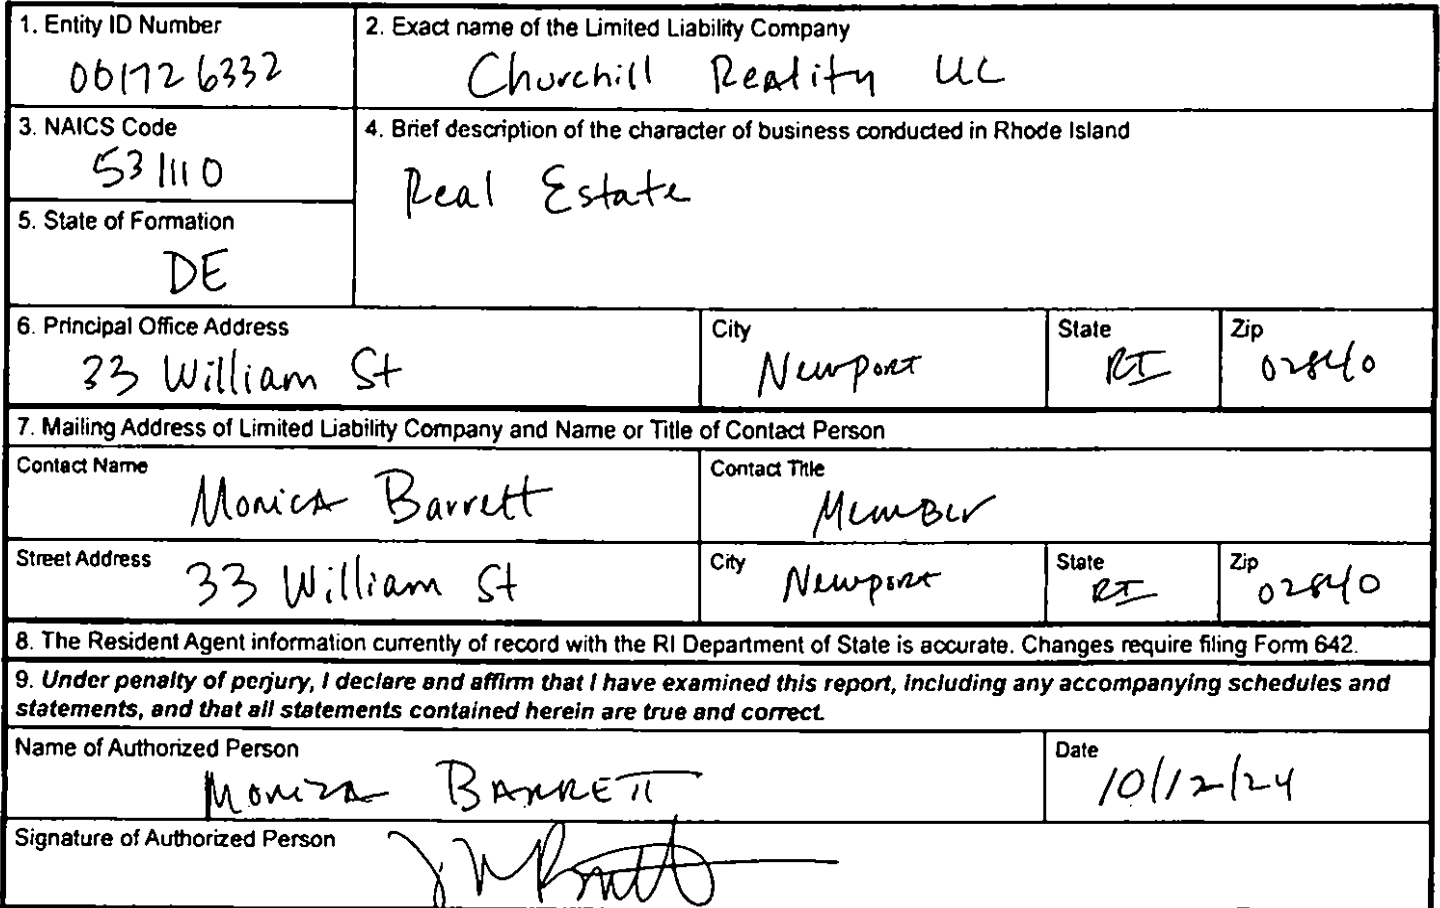 1. Entity ID Number
001726332
2. Exact name of the Limited Liability Company
Churchill Reality LLC
3. NAICS Code
531110
4. Brief description of the character of business conducted in Rhode Island
Real Estate
5. State of Formation
DE
6. Principal Office Address
33 William St
City
Newport
State
RI
Zip
02840
7. Mailing Address of Limited Liability Company and Name or Title of Contact Person
Contact Name
Monica Barrett
Contact Title
Member
Street Address
33 William St
City
Newport
State
RI
Zip
02840
8. The Resident Agent information currently of record with the RI Department of State is accurate. Changes require filing Form 642.
9. Under penalty of perjury, I declare and affirm that I have examined this report, including any accompanying schedules and
statements, and that all statements contained herein are true and correct.
Name of Authorized Person
Monica BARRETT
Date
10/12/24
Signature of Authorized Person